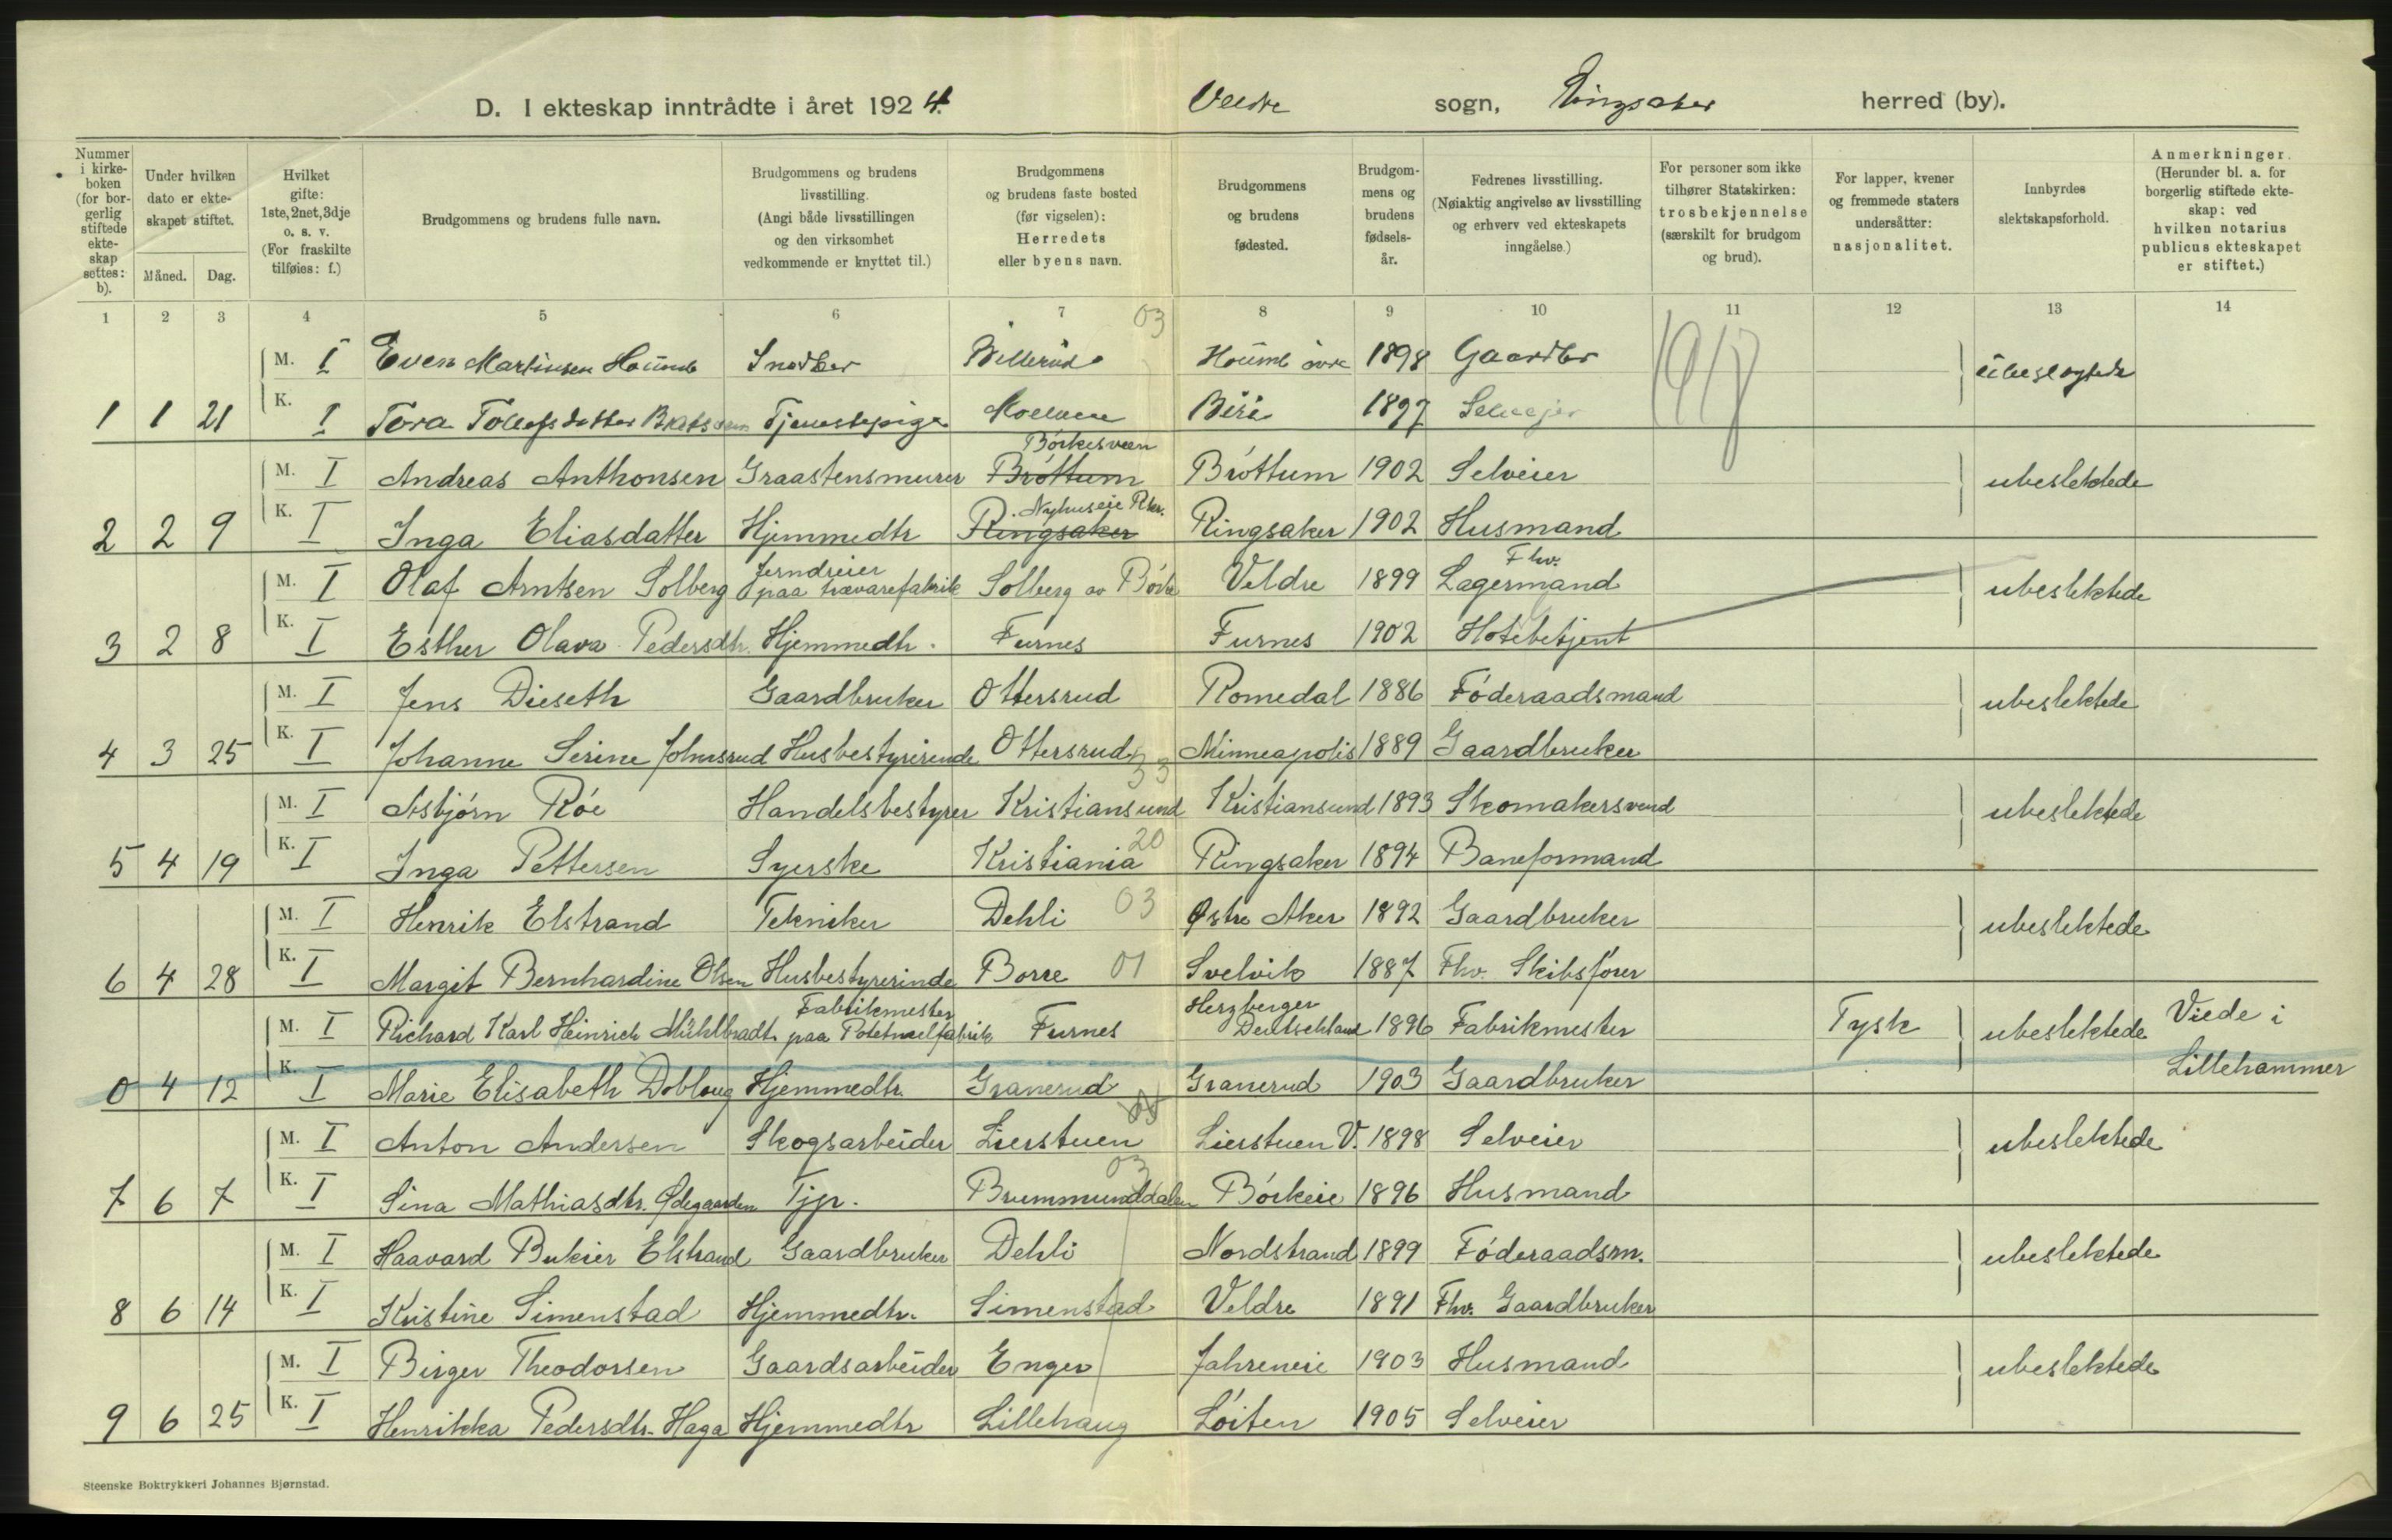 D. I ekteskap inntrådte i året 1924. Veldre sogn, Ringsaker herred (by).
Nummer i kirke-boken (for bor-gerlig stiftede ekte-skap settes: b).
Under hvilken dato er ekte-skapet stiftet.
Måned. Dag.
Hvilket gifte: 1ste, 2net, 3dje o. s. v. (For fraskilte tilføies: f.)
Brudgommens og brudens fulle navn.
Brudgommens og brudens livsstilling. (Angi både livsstillingen og den virksomhet vedkommende er knyttet til.)
Brudgommens og brudens faste bosted (før vigselen): Herredets eller byens navn.
Brudgommens og brudens fødested.
Brudgom-mens og brudens fødsels-år.
Fedrenes livsstilling. (Nøiaktig angivelse av livsstilling og erhverv ved ekteskapets inngåelse.)
For personer som ikke tilhører Statskirken: trosbekjennelse (særskilt for brudgom og brud).
For lapper, kvener og fremmede staters undersåtter: nasjonalitet.
Innbyrdes slektskapsforhold.
Anmerkninger. (Herunder bl. a. for borgerlig stiftede ekte-skap: ved hvilken notarius publicus ekteskapet er stiftet.)
1 2 3 4 5 6 7 8 9 10 11 12 13 14
03
M. I Even Martinsen Houmb Snedker Billerud Houmb 1898 Gaardbr
1 1 21 K. I Tora Tollefsdatter Tjenestepige Moelven Biri 1897 Selveejer
Börkesveen
M. I Andreas Anthonsen Graastensmurer Bröttum Bröttum 1902 Selveier ubeslektede
Nyhuseie Rker.
2 2 9 K. I Inga Eliasdatter Hjemmedtr Ringsaker Ringsaker 1902 Husmand
Jerndreier Fhv.
M. I Olaf Arntsen Solberg paa trævarefabrik Solberg av Börke Veldre 1899 Lagermand ubeslektede
3 2 8 K. I Esther Olava Pedersdtr. Hjemmedtr. Furnes Furnes 1902 Hotelbetjent
M. I Jens Dieseth Gaardbruker Ottersrud Romedal 1886 Föderaadsmand ubeslektede
4 3 25 K. I Johanne Serine Johnsrud Husbestyrerinde Ottersrud Minneapolis 1889 Gaardbruker
M. I Asbjörn Röe Handelsbestyrer Kristiansund Kristiansund 1893 Skomakersvend ubeslektede
20
5 4 19 K. I Inga Pettersen Syerske Kristiania Ringsaker 1894 Baneformand
M. I Henrik Elstrand Tekniker Dehli 03 Østre Aker 1892 Gaardbruker ubeslektede
6 4 28 K. I Margit Bernhardine Olsen Husbestyrerinde Borre 01 Svelvik 1887 Fhv. Skibsförer
Fabrikmester Herzberger
M. I Richard Karl Heinrich Mühlbradt paa Potetmelfabrik Furnes Deutschland 1896 Fabrikmester Tysk ubeslektede Viede i
0 4 12 K. I Marie Elisabeth Dobloug Hjemmedtr. Granerud Granerud 1903 Gaardbruker Lillehammer
M. I Anton Andersen Skogsarbeider Lierstuen Lierstuen V. 1898 Selveier ubeslektede
03
7 6 7 K. I Sina Mathiasdtr. Ødegaarden Tjp. Brummunddalen Börkeie 1896 Husmand
M. I Haavard Bukier Elstrand Gaardbruker Dehli Nordstrand 1899 Föderaadsm. ubeslektede
8 6 14 K. I Kristine Simenstad Hjemmedtr. Simenstad Veldre 1891 Fhv. Gaardbruker
M. I Birger Theodorsen Gaardsarbeider Enger Jahreneie 1903 Husmand ubeslektede
9 6 25 K. I Henrikka Pedersdtr. Haga Hjemmedtr Lillehaug Löiten 1905 Selveier
Steenske Boktrykkeri Johannes Bjørnstad.